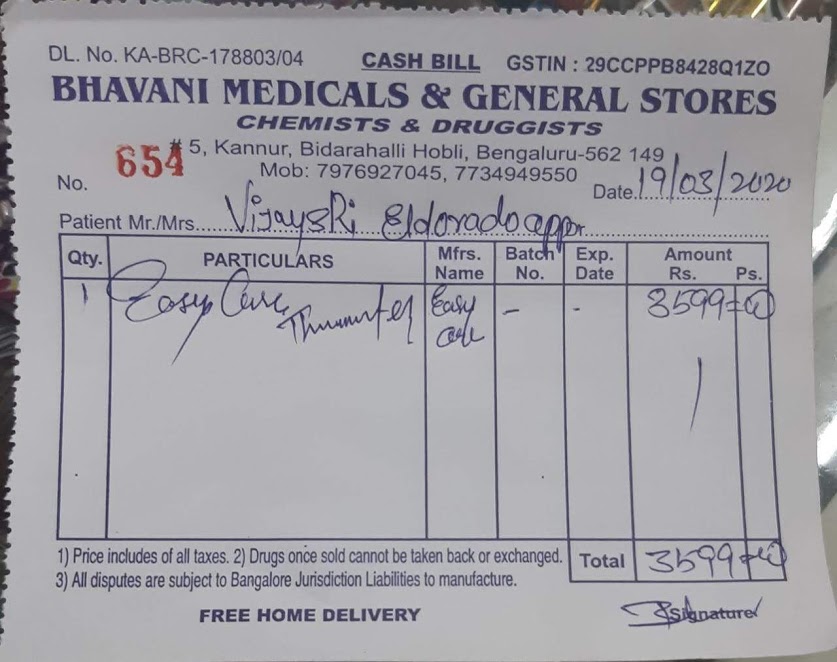 DL. No. KA-BRC-178803/04 CASH BILL GSTIN : 29CCPPB8428Q1ZO
BHAVANI MEDICALS & GENERAL STORES
CHEMISTS & DRUGGISTS
# 5, Kannur, Bidarahalli Hobli, Bengaluru-562 149
No. 654 Mob: 7976927045, 7734949550 Date. 19/03/2020
Patient Mr./Mrs. Eldorado
Qty. PARTICULARS Mfrs. Name Batch No. Exp. Date Amount Rs. Ps.
1 Easy Care Easy Care - - 3599
1) Price includes of all taxes. 2) Drugs once sold cannot be taken back or exchanged. Total 3599
3) All disputes are subject to Bangalore Jurisdiction Liabilities to manufacture.
FREE HOME DELIVERY Signature